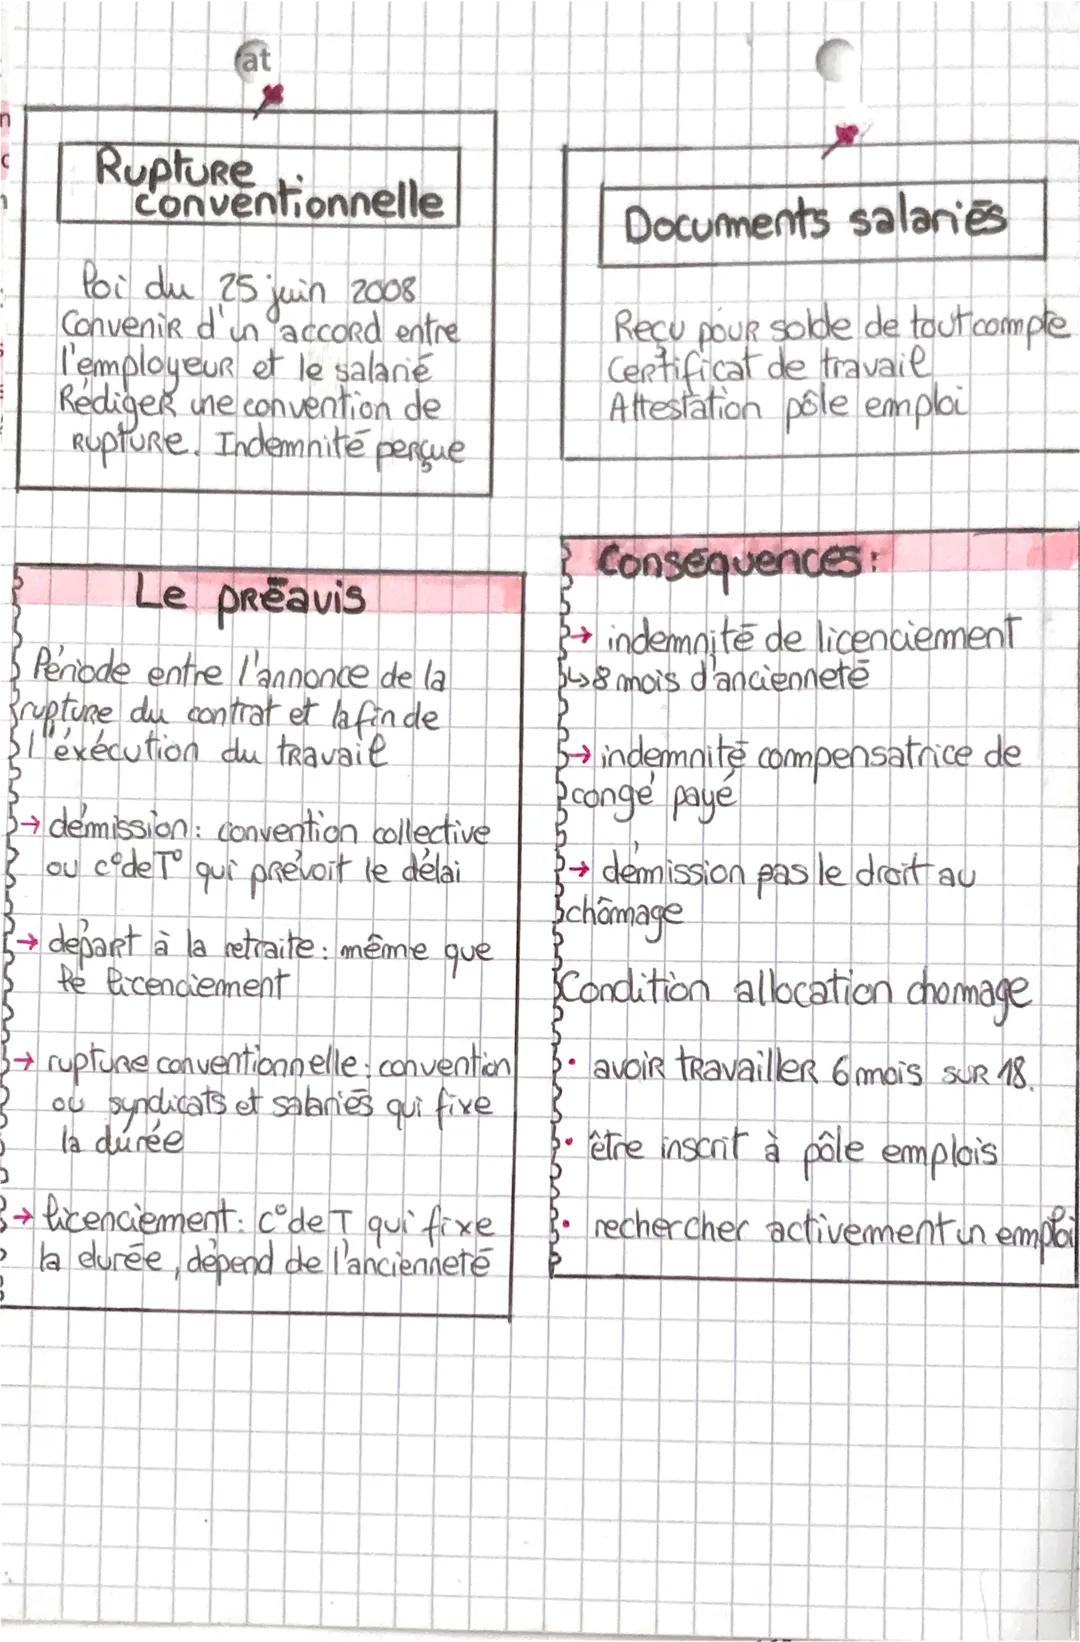 at
Rupture
conventionnelle
loi du 25 juin 2008
Convenir d'un accord entre
l'employeur et le salarié
Rédiger une convention de
rupture. Indemnité perçue
Documents salariés
Reçu pour solde de tout compte
Certificat de travail
Attestation pôle emploi
Le préavis
Période entre l'annonce de la
rupture du contrat et la fin de
l'éxécution du travail
→ démission : convention collective
ou c°de T° qui prévoit le délai
→ départ à la retraite : même que
le licenciement
→ rupture conventionnelle : convention
ou syndicats et salariés qui fixe
la durée
→ licenciement : c°de T qui fixe
la durée, dépend de l'ancienneté
Conséquences :
→ indemnité de licenciement
↳ 8 mois d'ancienneté
→ indemnité compensatrice de
congé payé
→ démission pas le droit au
chômage
Condition allocation chomage
• avoir travailler 6 mois sur 18.
• être inscrit à pôle emplois
• rechercher activement un emploi